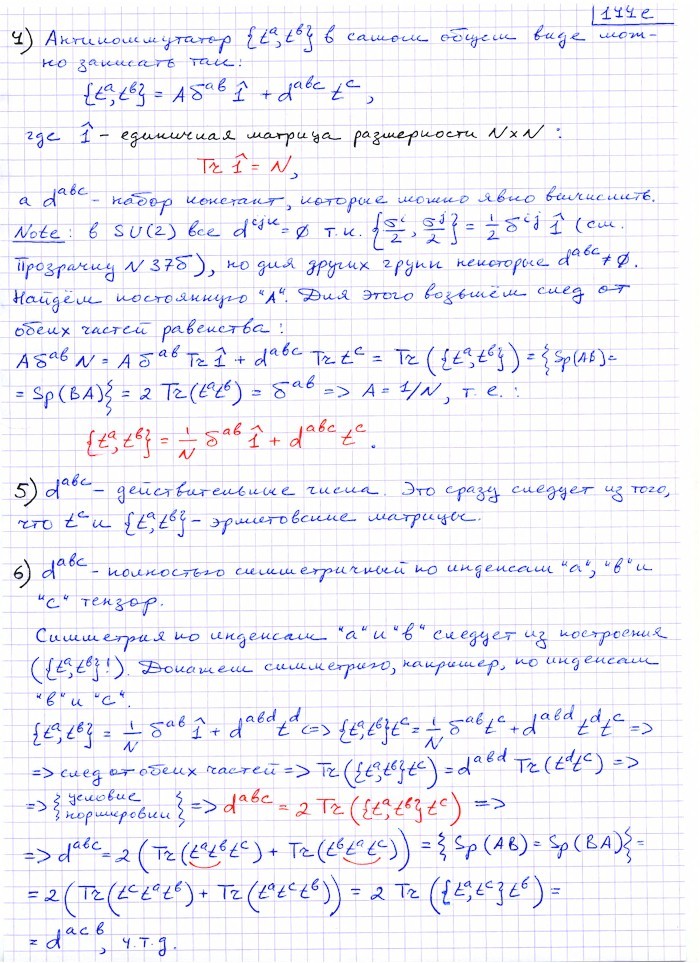 177е
4) Антикоммутатор {tᵃ,tᵇ} в самом общем виде мож-
но записать так:
{tᵃ,tᵇ} = Aδᵃᵇ 1̂ + dᵃᵇᶜ tᶜ,
где 1̂ - единичная матрица размерности N×N :
Tr 1̂ = N,
а dᵃᵇᶜ - набор констант, которые можно явно вычислить.
Note: в SU(2) все dⁱʲᵏ = ∅ т.к. {σⁱ/2, σʲ/2} = 1/2 δⁱʲ 1̂ (см.
Прозрачку N 37б), но для других групп некоторые dᵃᵇᶜ ≠ ∅.
Найдём постоянную "A". Для этого возьмём след от
обеих частей равенства:
Aδᵃᵇ N = A δᵃᵇ Tr 1̂ + dᵃᵇᶜ Tr tᶜ = Tr ({tᵃ,tᵇ}) = {Sp(AB) =
= Sp(BA)} = 2 Tr(tᵃtᵇ) = δᵃᵇ => A = 1/N, т.е. :
{tᵃ,tᵇ} = 1/N δᵃᵇ 1̂ + dᵃᵇᶜ tᶜ.
5) dᵃᵇᶜ - действительные числа. Это сразу следует из того,
что tᶜ и {tᵃ,tᵇ} - эрмитовские матрицы.
6) dᵃᵇᶜ - полностью симметричный по индексам "а", "в" и
"с" тензор.
Симметрия по индексам "а" и "в" следует из построения
({tᵃ,tᵇ}!). Докажем симметрию, например, по индексам
"в" и "с".
{tᵃ,tᵇ} = 1/N δᵃᵇ 1̂ + dᵃᵇᵈ tᵈ <=> {tᵃ,tᵇ}tᶜ = 1/N δᵃᵇ tᶜ + dᵃᵇᵈ tᵈtᶜ =>
=> след от обеих частей => Tr({tᵃ,tᵇ}tᶜ) = dᵃᵇᵈ Tr(tᵈtᶜ) =>
=> {условие нормировки} => dᵃᵇᶜ = 2 Tr({tᵃ,tᵇ}tᶜ) =>
=> dᵃᵇᶜ = 2(Tr(tᵃtᵇtᶜ) + Tr(tᵇtᵃtᶜ)) = {Sp(AB) = Sp(BA)} =
= 2(Tr(tᶜtᵃtᵇ) + Tr(tᵃtᶜtᵇ)) = 2 Tr({tᵃ,tᶜ}tᵇ) =
= dᵃᶜᵇ, ч.т.д.